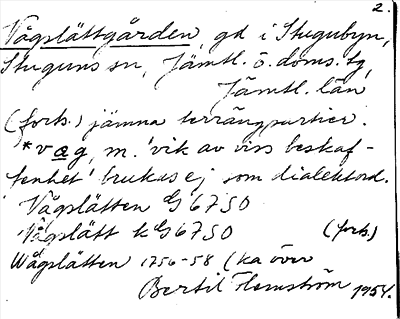 2.
Vågslättgården, gd i Stugubyn,
Stuguns sn, Jämtl. ö. doms. tg
Jämtl. län
(forts.) jämna terrängpartier.
*våg, m. 'vik av viss beskaf-
fenhet' brukas ej som dialektord.
Vågslätten G 6750
Vågslätt k G 6750 (forts)
Wågslätten 1756-58 (ka över
Bertil Flemström 1954.